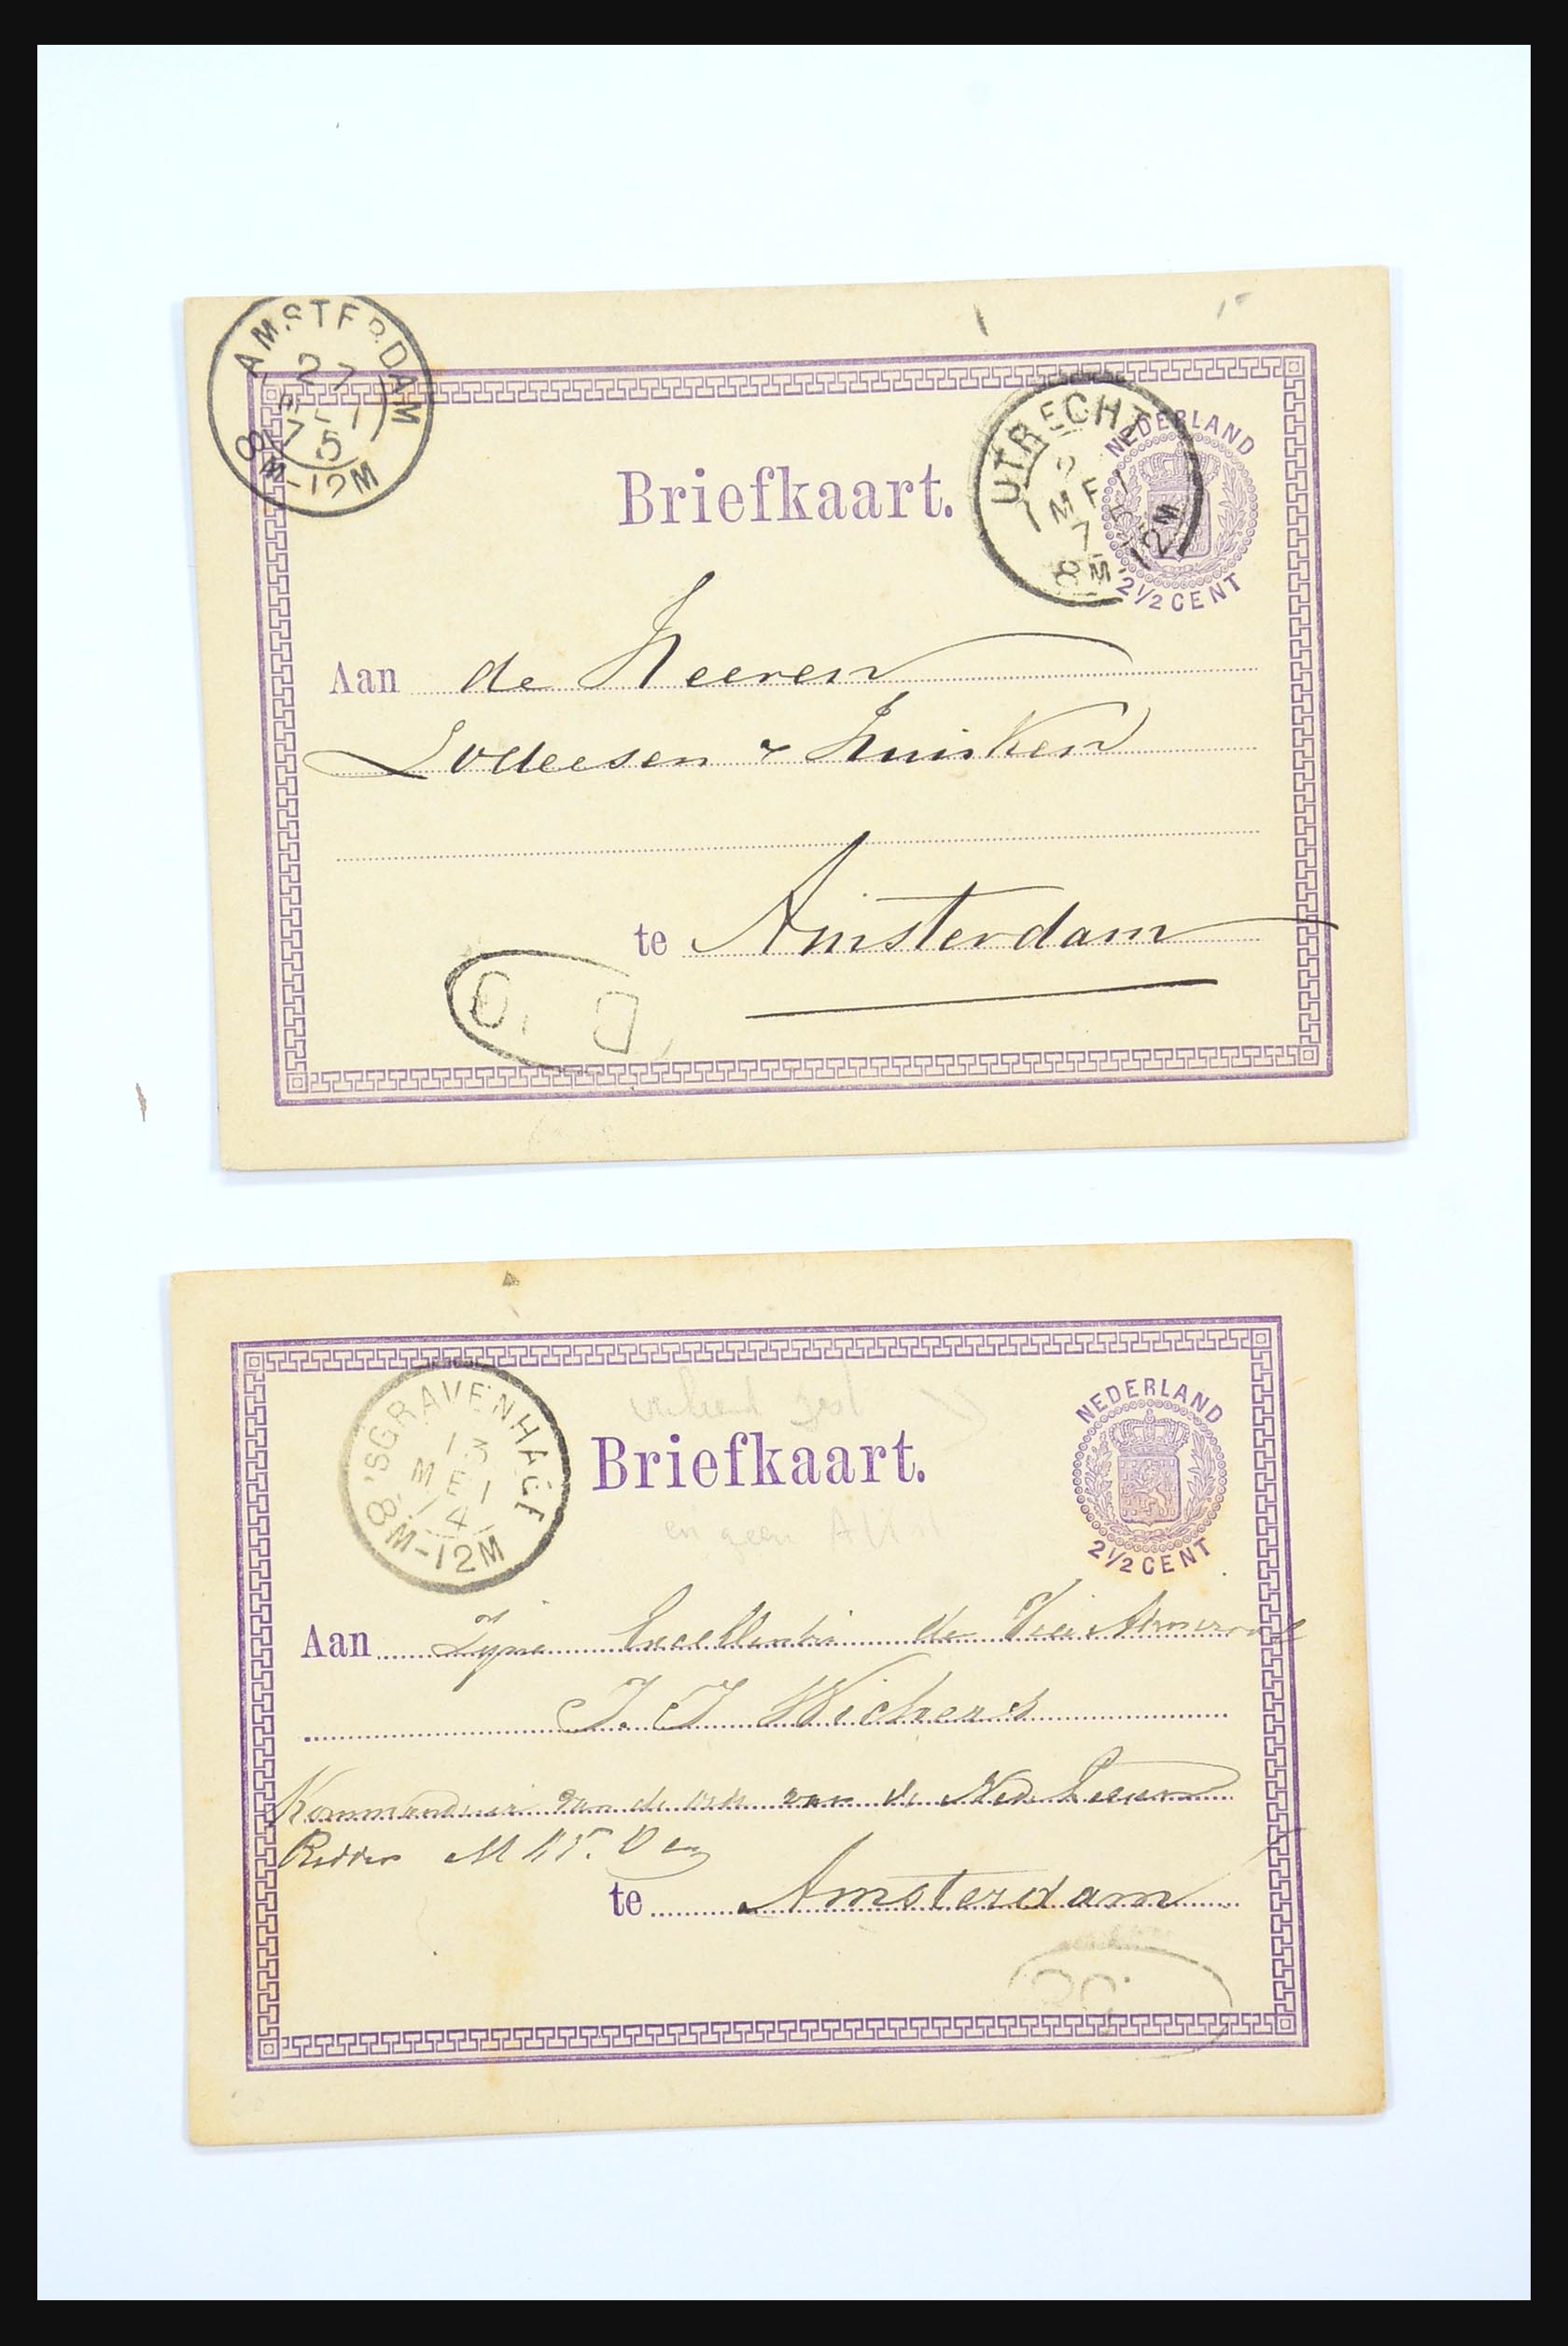 AMSTERDAM
27
MEI
75
8M-12M
UTRECHT
2
MEI
75
8M-12M
NEDERLAND
2½ CENT
Briefkaart.
Aan de Heeren
Lodeesen & Huisken
te Amsterdam
'SGRAVENHAGE
13
MEI
74
8M-12M
NEDERLAND
2½ CENT
Briefkaart.
en geen
Aan Zijne Excellentie de Vice Admiraal
J. J. Wichers
Kommandeur van de orde van de Ned. Leeuw
Ridder
te Amsterdam